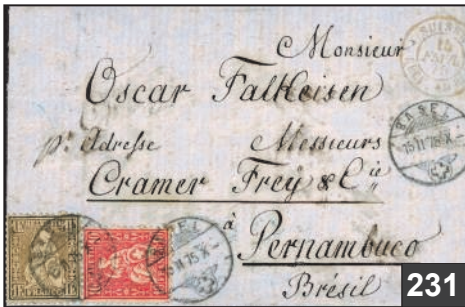 Monsieur
Oscar Falkeisen
pr Adresse Messieurs
Cramer Frey & Cie
à
Pernambuco
Brésil
SUISSE
BASEL
BASEL
231